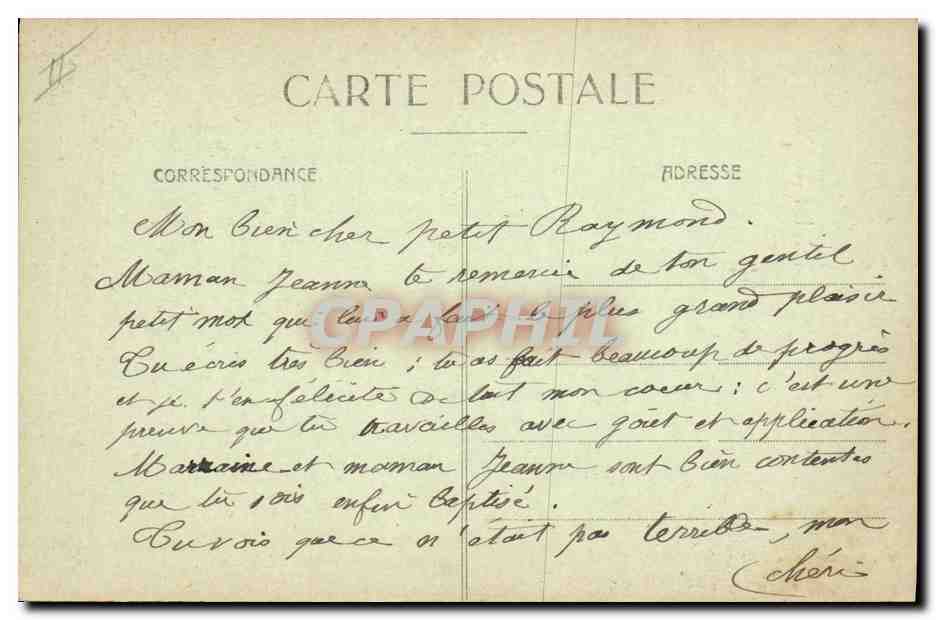 II
CARTE POSTALE
CORRESPONDANCE
ADRESSE
Mon bien cher petit Raymond.
Maman Jeanne te remercie de ton gentil
petit mot qui lui a fait le plus grand plaisir
Tu écris très bien ; tu as fait beaucoup de progrès
et je t'en félicite de tout mon coeur ; c'est une
preuve que tu travailles avec goût et application.
Marraine et maman Jeanne sont bien contentes
que tu sois enfin baptisé.
Tu vois que ce n'était pas terrible, mon
chéri
CPAPHIL